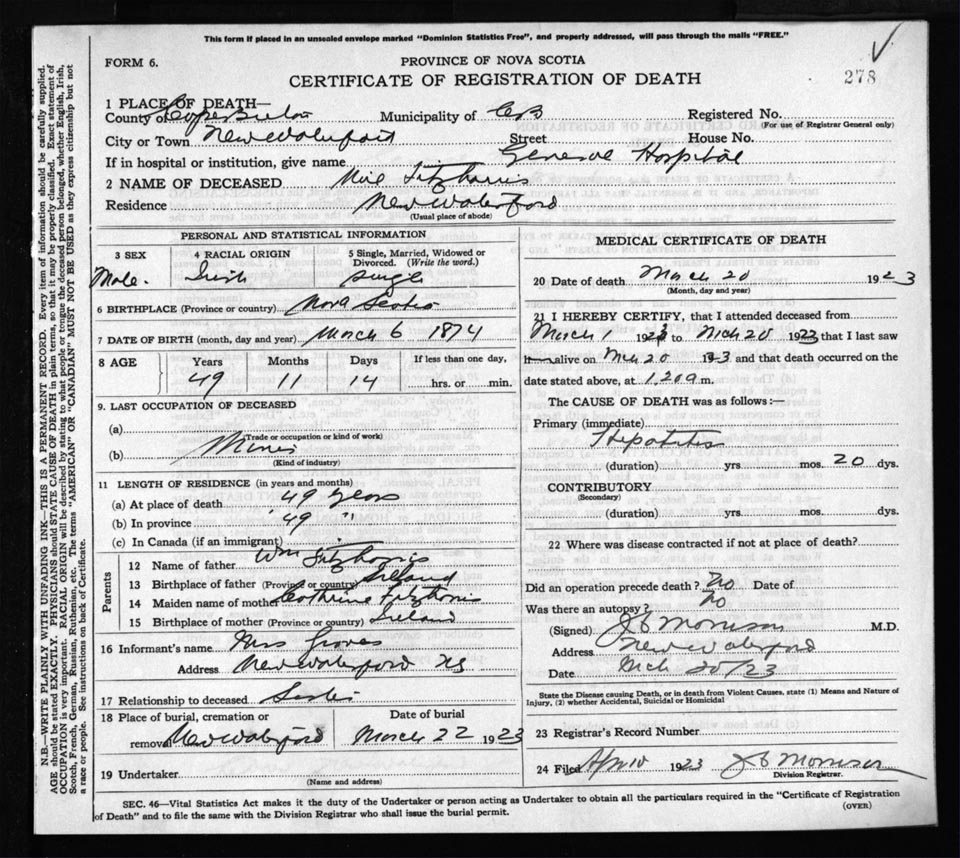 This form if placed in an unsealed envelope marked "Dominion Statistics Free", and properly addressed, will pass through the mails "FREE."
FORM 6.
PROVINCE OF NOVA SCOTIA
278
CERTIFICATE OF REGISTRATION OF DEATH
1 PLACE OF DEATH—
County of Cape Breton Municipality of CB Registered No.
(For use of Registrar General only)
City or Town New Waterford Street House No.
If in hospital or institution, give name General Hospital
2 NAME OF DECEASED Fitzharris
Residence New Waterford
(Usual place of abode)
PERSONAL AND STATISTICAL INFORMATION
3 SEX 4 RACIAL ORIGIN 5 Single, Married, Widowed or Divorced. (Write the word.)
Male. Irish Single
6 BIRTHPLACE (Province or country) Nova Scotia
7 DATE OF BIRTH (month, day and year) March 6 1874
8 AGE Years Months Days If less than one day,
49 11 14 hrs. or min.
9. LAST OCCUPATION OF DECEASED
(a)
(Trade or occupation or kind of work)
(b) Miner
(Kind of industry)
11 LENGTH OF RESIDENCE (in years and months)
(a) At place of death 49 years
(b) In province 49 "
(c) In Canada (if an immigrant)
Parents
12 Name of father Wm Fitzharris
13 Birthplace of father (Province or country) Ireland
14 Maiden name of mother Cathrine Fitzharris
15 Birthplace of mother (Province or country) Ireland
16 Informant's name Mrs Groves
Address New Waterford NS
17 Relationship to deceased Sister
18 Place of burial, cremation or removal New Waterford
Date of burial March 22 1923
19 Undertaker
(Name and address)
MEDICAL CERTIFICATE OF DEATH
20 Date of death March 20 1923
(Month, day and year)
21 I HEREBY CERTIFY, that I attended deceased from
March 1 1923 to Mch 20 1923 that I last saw
h alive on Mch 20 1923 and that death occurred on the
date stated above, at 1.20 a m.
The CAUSE OF DEATH was as follows:—
Primary (immediate)
Hepatitis
(duration) yrs mos. 20 dys.
CONTRIBUTORY
(Secondary)
(duration) yrs. mos. dys.
22 Where was disease contracted if not at place of death?
Did an operation precede death? No Date of
Was there an autopsy? No
(Signed) J C Morrison M.D.
Address New Waterford
Date Mch 20/23
State the Disease causing Death, or in death from Violent Causes, state (1) Means and Nature of
Injury, (2) whether Accidental, Suicidal or Homicidal
23 Registrar's Record Number
24 Filed Apr 10 1923 J C Morrison
Division Registrar.
SEC. 46—Vital Statistics Act makes it the duty of the Undertaker or person acting as Undertaker to obtain all the particulars required in the "Certificate of Registration
of Death" and to file the same with the Division Registrar who shall issue the burial permit.
(OVER)
N.B.—WRITE PLAINLY WITH UNFADING INK—THIS IS A PERMANENT RECORD. Every item of information should be carefully supplied.
AGE should be stated EXACTLY. PHYSICIANS should STATE CAUSE OF DEATH in plain terms, so that it may be properly classified. Exact statement of
OCCUPATION is very important. RACIAL ORIGIN will be described by stating to what people or tongue the deceased person belonged, whether English, Irish,
Scotch, French, German, Russian, Ruthenian, etc. The terms "AMERICAN" OR "CANADIAN" MUST NOT BE USED as they express citizenship but not
a race or people. See instructions on back of Certificate.